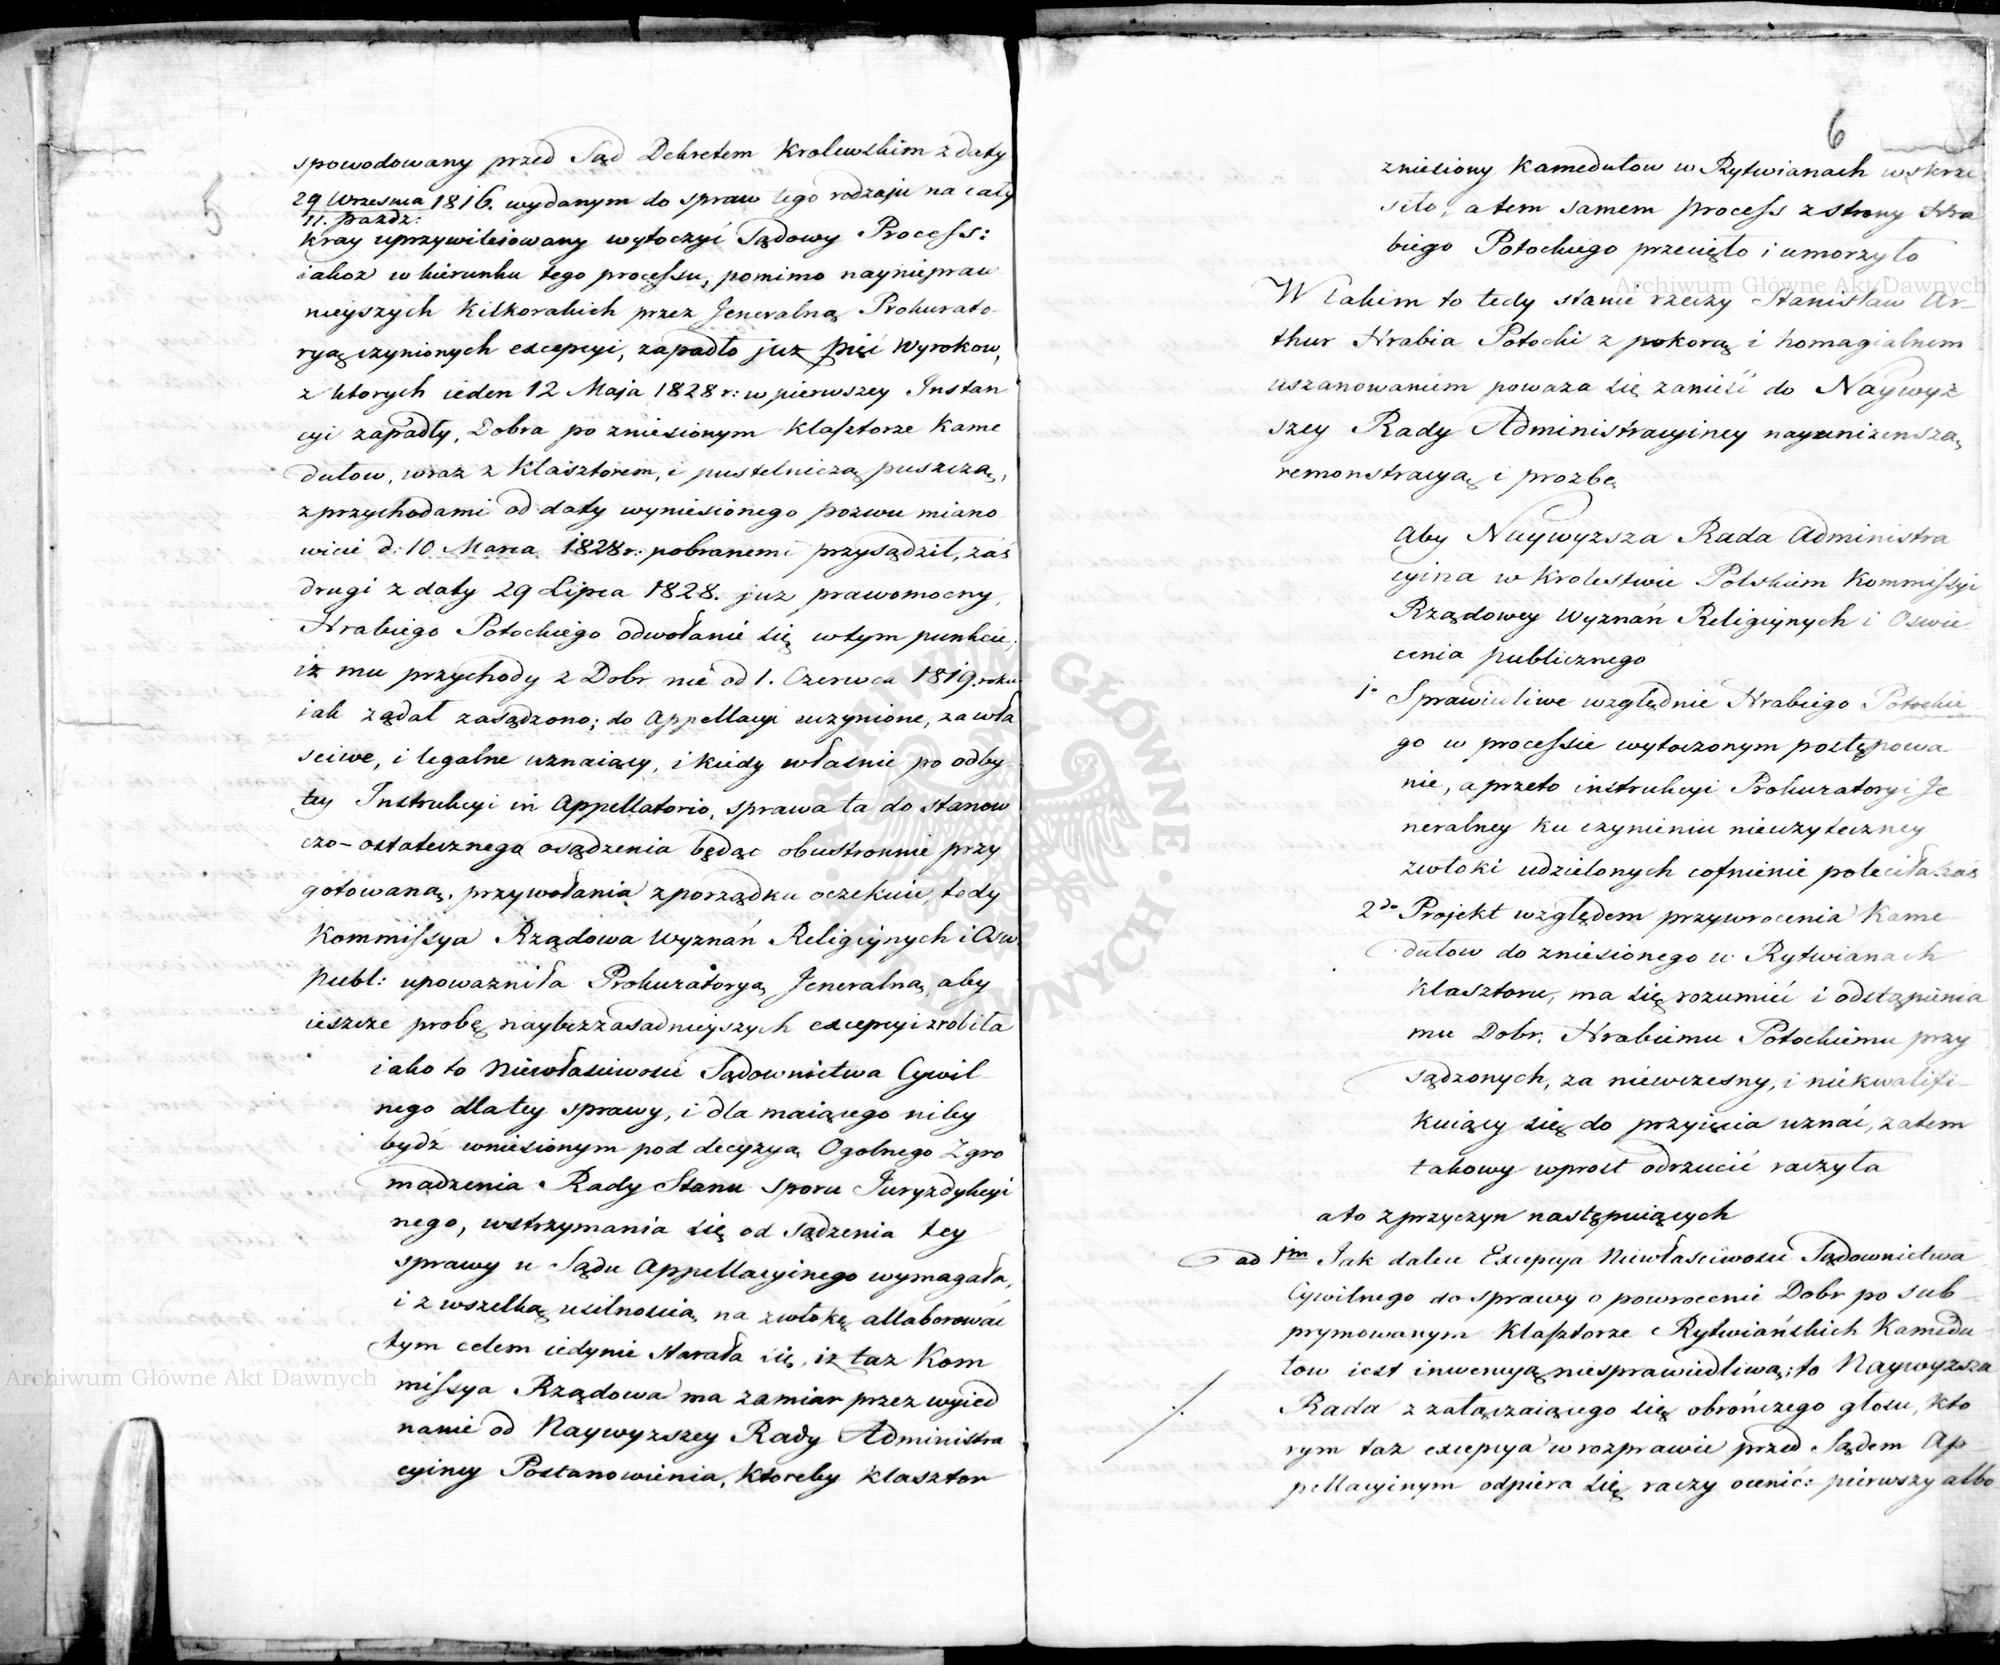 5
spowodowany przed Sąd Dekretem Krolewskim z daty
29 Wrzesnia 1816. wydanym do spraw tego rodzaju na cały
11. Pazdz:
Kray uprzywileiowany wytoczyć Sądowy Process:
iakoz w kierunku tego processu, pomimo nayniepraw
nieyszych kilkorakich przez Jeneralną Prokurato-
ryą czynionych excepcyi, zapadło juz pięć Wyrokow,
z ktorych ieden 12 Maja 1828 r: w pierwszey Instan
cyi zapadły, Dobra po zniesionym Klasztorze Kame
dułow, wraz z Klasztorem, i pustelniczą puszczą,
z przychodami od daty wyniesionego pozwu miano
wicie d: 10 Marca 1828 r: pobranemi przysądził, zaś
drugi z daty 29 Lipca 1828. juz prawomocny,
Hrabiego Potockiego odwołanie się w tym punkcie,
iż mu przychody z Dobr nie od 1. Czerwca 1819. roku
iak ządał zasądzono; do Appellacyi uczynione, za wła
sciwe, i legalne uznaiący, i kiedy własnie po odby
tey Instrukcyi in Appellatorio, sprawa ta do stanow
czo-ostatecznego osądzenia będąc obustronnie przy
gotowaną, przywołania z porządku oczekuie, tedy
Kommissya Rządowa Wyznań Religiynych i Osw.
Publ: upowazniła Prokuratoryą Jeneralną, aby
ieszcze probę naybezzasadnieyszych excepcyi zrobiła
iako to Niewłasciwosci Sądownictwa Cywil
nego dla tey sprawy, i dla maiącego niby
bydź wniesionym pod decyzyą Ogolnego Zgro
madzenia Rady Stanu sporu Juryzdykcyi
nego, wstrzymania się od sądzenia tey
sprawy u Sądu Appellacyinego wymagała,
i z wszelką usilnoscią na zwłokę allaborować
tym celem iedynie starała się, iz taz Kom
missya Rządowa ma zamiar przez wyied
nanie od Naywyzszey Rady Administra
cyiney Postanowienia, ktoreby Klasztor
6
zniesiony Kamedułow w Rytwianach wskrze
siło, a tem samem process z strony Hra
biego Potockiego przecięło i umorzyło
W takim to tedy stanie rzeczy Stanisław Ar-
thur Hrabia Potocki z pokorą i homagialnem
uszanowaniem powaza się zanieść do Naywyz
szey Rady Administracyiney nayunizenszą
remonstracyą i prozbę
Aby Naywyzsza Rada Administra
cyina w Krolestwie Polskim Kommissyi
Rządowey Wyznań Religiynych i Oswie-
cenia publicznego
1o Sprawiedliwe względnie Hrabiego Potockie-
go w processie wytoczonym postępowa
nie, a przeto instrukcyi Prokuratoryi Je
neralney ku czynieniu nieuzyteczney
zwłoki udzielonych cofnienie poleciła zaś
2do Projekt względem przywrocenia Kame-
dułow do zniesionego w Rytwianach
Klasztoru, ma się rozumieć i odstąpienia
mu Dobr, Hrabiemu Potockiemu przy
sądzonych, za niewczesny, i niekwalifi-
kuiący się do przyięcia uznać, zatem
takowy wprost odrzucić raczyła
a to z przyczyn następuiących
ad 1m Jak dalece Excepcya Niewłasciwosci Sądownictwa
Cywilnego do sprawy o powrocenie Dobr po sub-
prymowanym Klasztorze Rytwiańskich Kamedu-
łow iest inwencyą niesprawiedliwą; to Naywyzsza
Rada z załączaiącego się obrończego głosu, kto
rym taz excepcya w rozprawie przed Sądem Ap-
pellacyinym odpiera się raczy ocenić: pierwszy albo
Archiwum Główne Akt Dawnych
Archiwum Główne Akt Dawnych